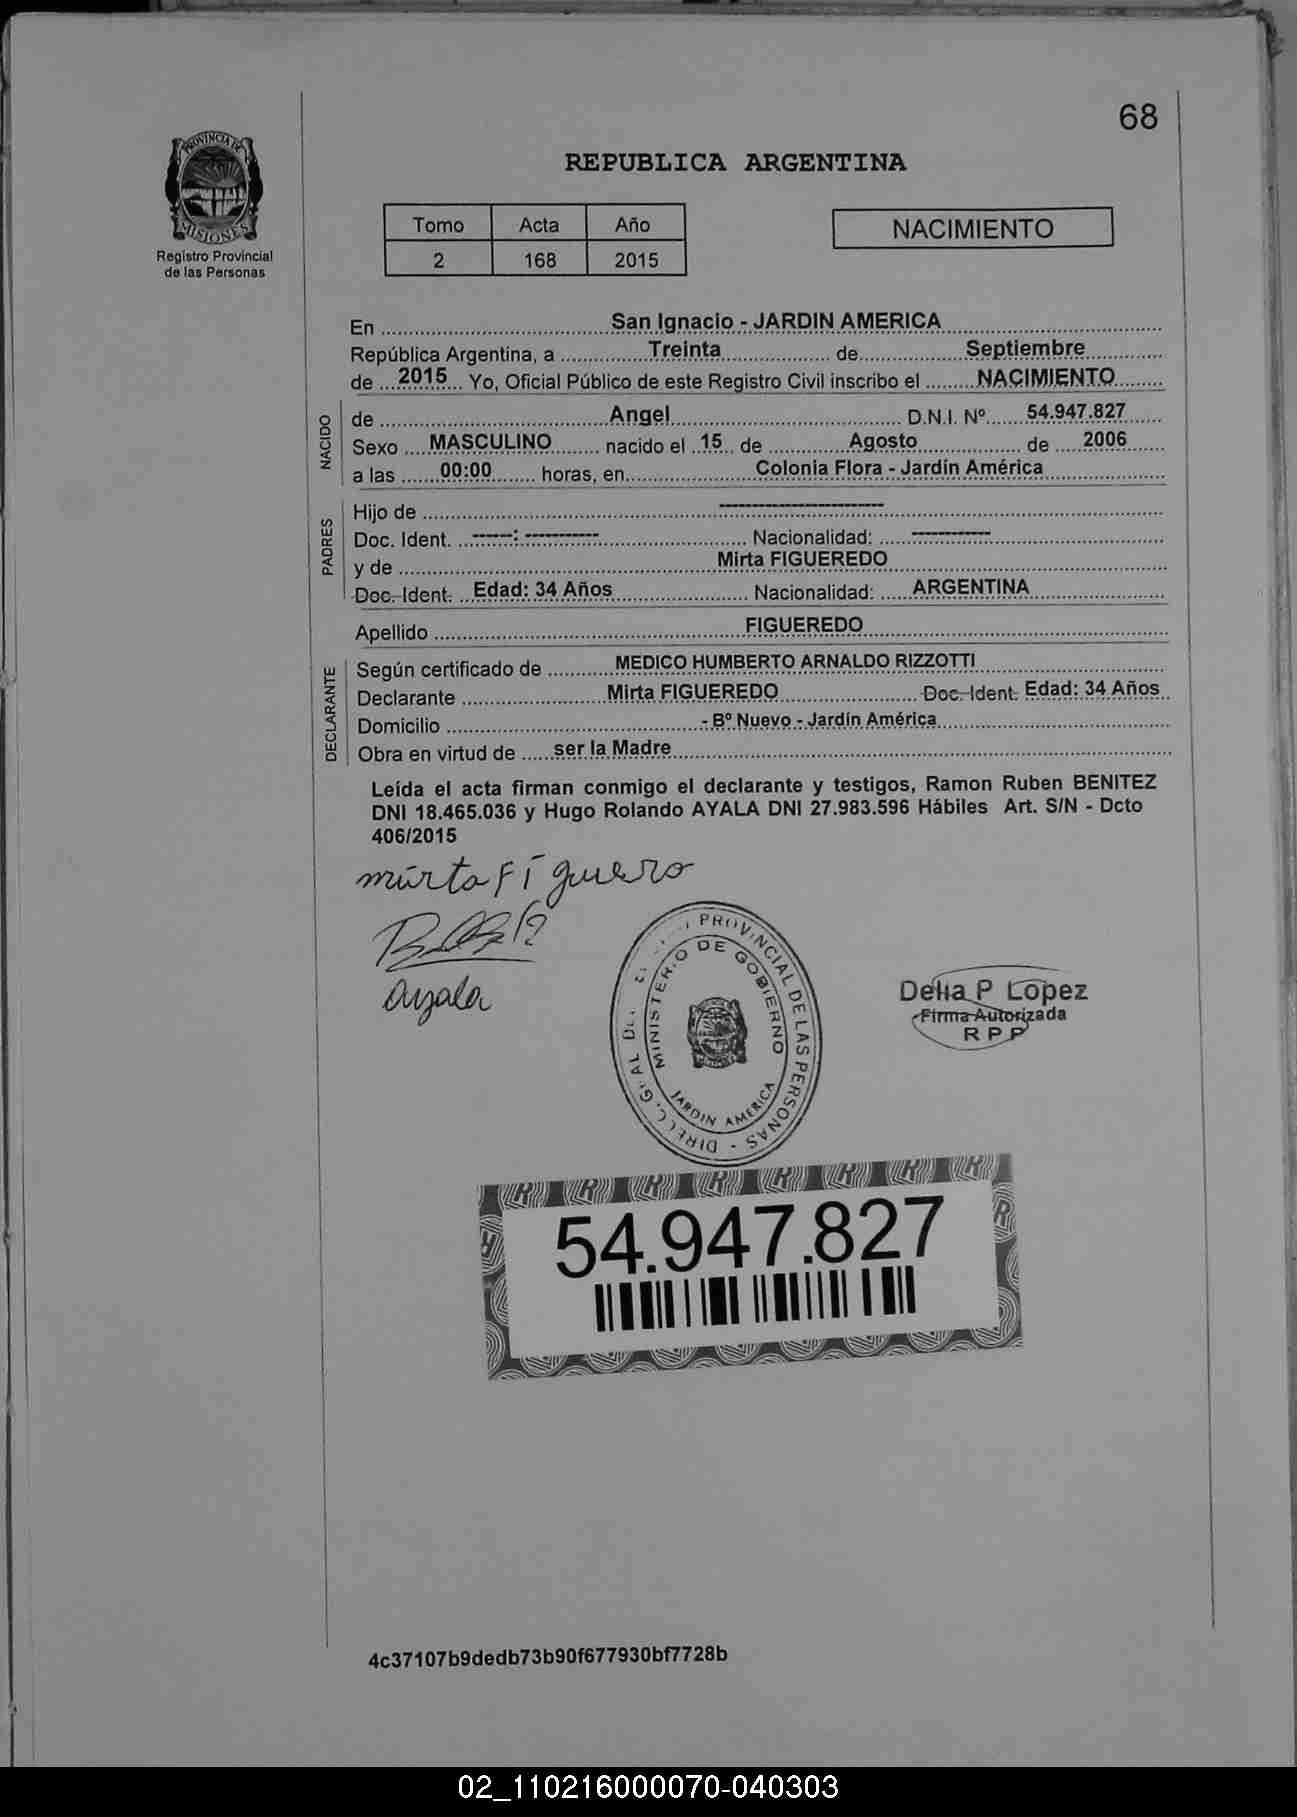 68
PROVINCIA DE
MISIONES
Registro Provincial
de las Personas
REPUBLICA ARGENTINA
Tomo Acta Año
2 168 2015
NACIMIENTO
En ........ San Ignacio - JARDIN AMERICA ........
República Argentina, a ........ Treinta ........ de ........ Septiembre ........
de ... 2015 ... Yo, Oficial Público de este Registro Civil inscribo el ........ NACIMIENTO ........
NACIDO
de ........ Angel ........ D.N.I. Nº ...... 54.947.827 ......
Sexo .... MASCULINO ........ nacido el .15. de ........ Agosto ........ de ..... 2006 ......
a las ....... 00:00 ......... horas, en ........ Colonia Flora - Jardín América ........
PADRES
Hijo de ........ -------------------- ........
Doc. Ident. ...------: ----------- ........ Nacionalidad: ..... ----------- ........
y de ........ Mirta FIGUEREDO ........
Doc. Ident. .. Edad: 34 Años ........ Nacionalidad: ..... ARGENTINA ........
Apellido ........ FIGUEREDO ........
DECLARANTE
Según certificado de ........ MEDICO HUMBERTO ARNALDO RIZZOTTI ........
Declarante ........ Mirta FIGUEREDO ........ Doc. Ident. Edad: 34 Años ..
Domicilio ........ - Bº Nuevo - Jardín América ........
Obra en virtud de ..... ser la Madre ........
Leída el acta firman conmigo el declarante y testigos, Ramon Ruben BENITEZ
DNI 18.465.036 y Hugo Rolando AYALA DNI 27.983.596 Hábiles Art. S/N - Dcto
406/2015
mirta Figuero
Ayala
PROVINCIAL DE LAS PERSONAS - DIRECC. G
MINISTERIO DE GOBIERNO
JARDIN AMERICA
Delia P Lopez
Firma Autorizada
R P P
54.947.827
4c37107b9dedb73b90f677930bf7728b
02_110216000070-040303